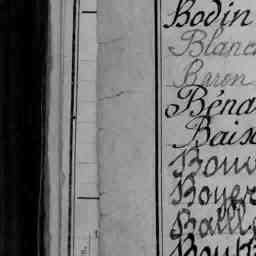 Bodin
Blanc
Baron
Béna
Bais
Bouv
Boyer
Baill
Bout